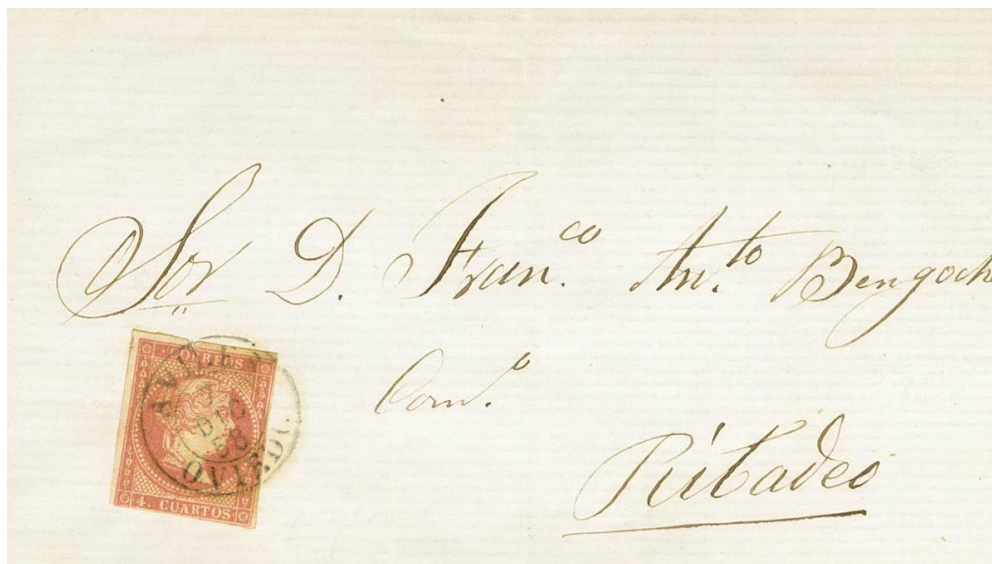 Sor D. Fran.co Ant.to Bengoch
Com.o
Ribadeo
CORREOS
AVILES
7
DIC
58
OVIEDO.
4. CUARTOS